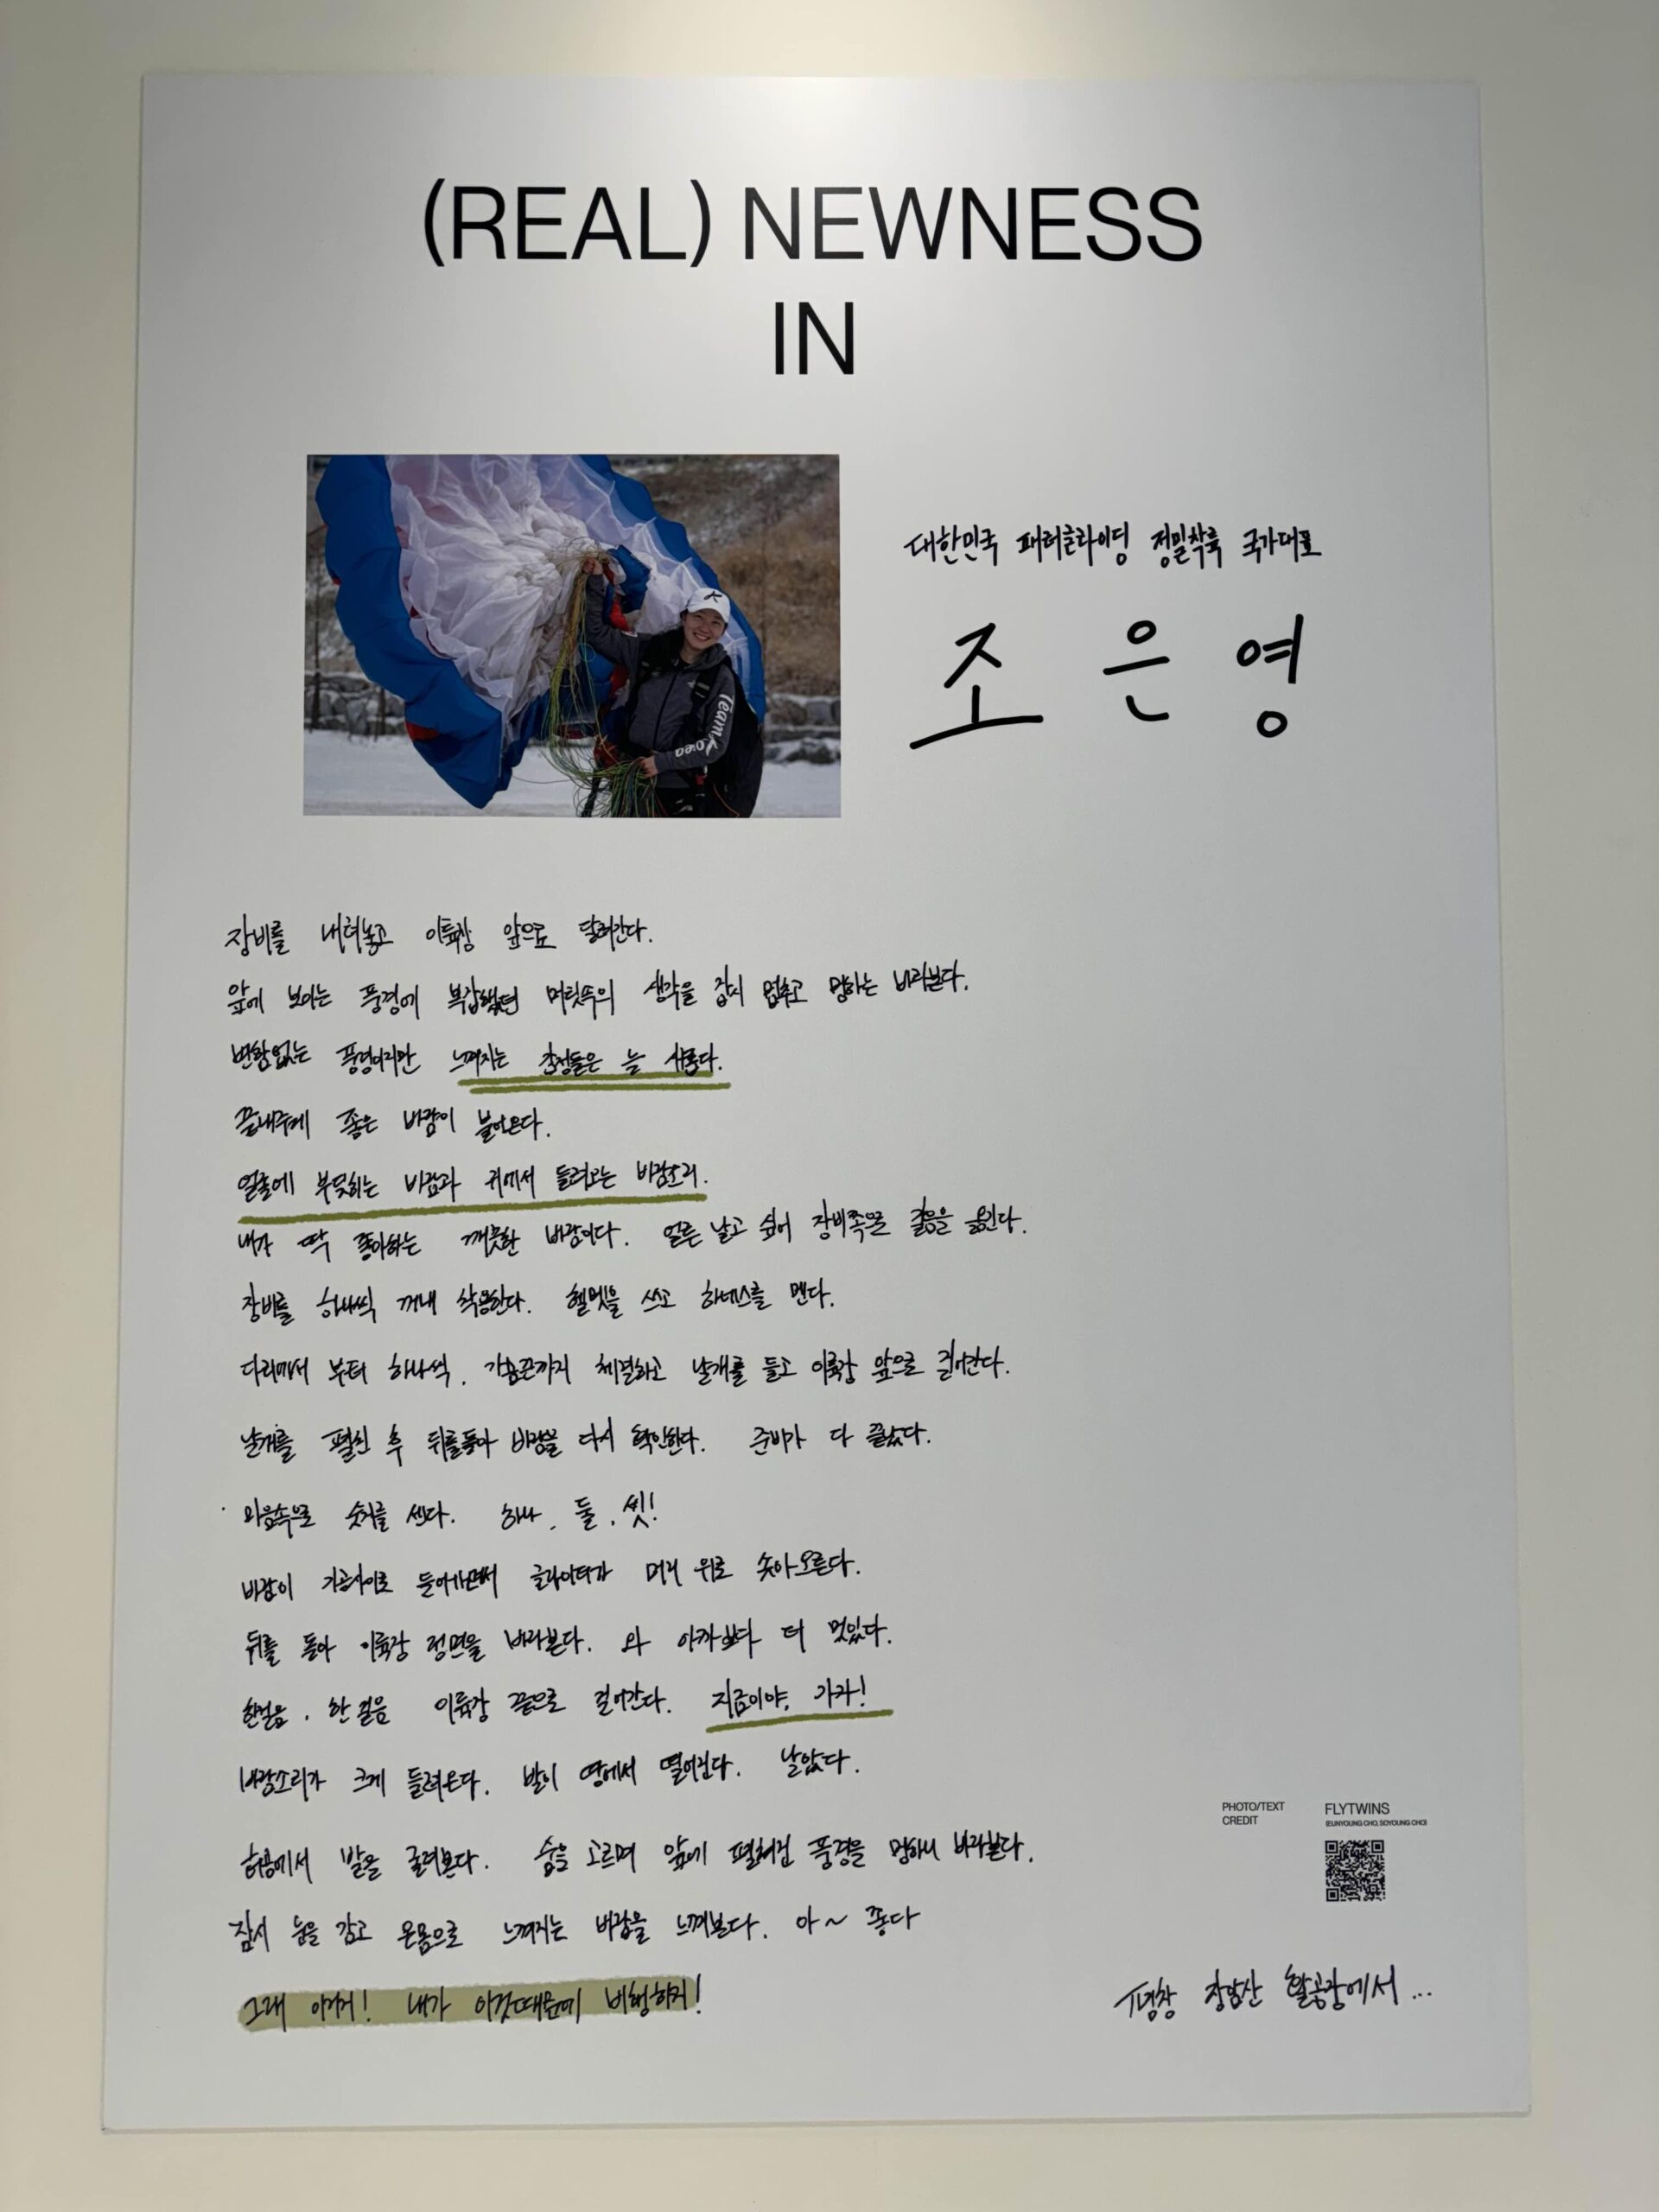 (REAL) NEWNESS
IN
대한민국 패러글라이딩 정밀착륙 국가대표
조은영
Team Korea
장비를 내려놓고 이륙장 앞으로 달려간다.
앞에 보이는 풍경에 복잡했던 머릿속의 생각을 잠시 멈추고 멍하는 바라본다.
변함없는 풍경이지만 느껴지는 감정들은 늘 새롭다.
끝내주게 좋은 바람이 불어온다.
얼굴에 부딪히는 바람과 귀에서 들려오는 바람소리.
내가 딱 좋아하는 깨끗한 바람이다. 얼른 날고 싶어 장비쪽으로 걸음을 옮긴다.
장비를 하나씩 꺼내 착용한다. 헬멧을 쓰고 하네스를 멘다.
다리에서 부터 하나씩, 가슴끈까지 체결하고 날개를 들고 이륙장 앞으로 걸어간다.
날개를 펼친 후 뒤를돌아 바람을 다시 확인한다. 준비가 다 끝났다.
마음속으로 숫자를 센다. 하나, 둘, 셋!
바람이 기공사이로 들어가면서 글라이더가 머리 위로 솟아오른다.
뒤를 돌아 이륙장 정면을 바라본다. 와 아까보다 더 멋있다.
한걸음, 한걸음 이륙장 끝으로 걸어간다. 지금이야, 가자!
바람소리가 크게 들려온다. 발이 땅에서 떨어진다. 날았다.
허공에서 발을 굴려본다. 숨을 고르며 앞에 펼쳐진 풍경을 멍하니 바라본다.
잠시 눈을 감고 온몸으로 느껴지는 바람을 느껴본다. 아~ 좋다
그래 이거지! 내가 이것때문에 비행하지!
PHOTO/TEXT CREDIT
FLYTWINS
(EUNYOUNG CHO, SOYOUNG CHO)
평창 장암산 활공장에서...